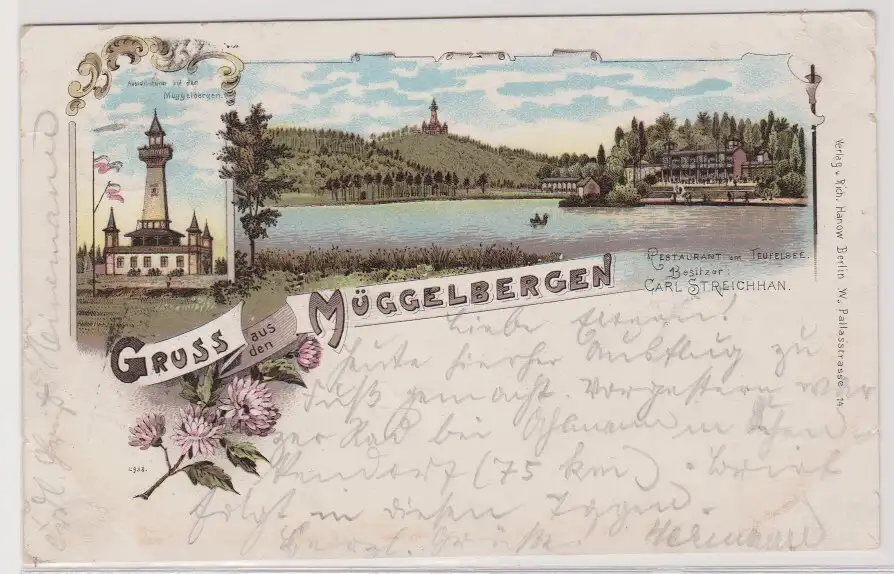 Aussichtsturm auf den
Müggelbergen.
Restaurant am Teufelsee.
Besitzer:
Carl Streichhan.
Gruss aus den Müggelbergen
Verlag v. Rich. Hanow Berlin W. Pallasstrasse 14.
Liebe
Heute hierher Ausflug zu
Fuß gemacht. Vorgestern war
per Rad bei
(75 km). Brief
folgt in diesen Tagen.
Herzl. Grüße Hermann